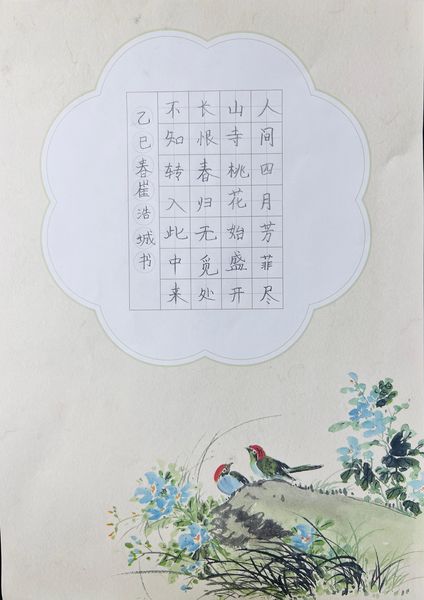 人间四月芳菲尽
山寺桃花始盛开
长恨春归无觅处
不知转入此中来
乙巳春崔浩城书